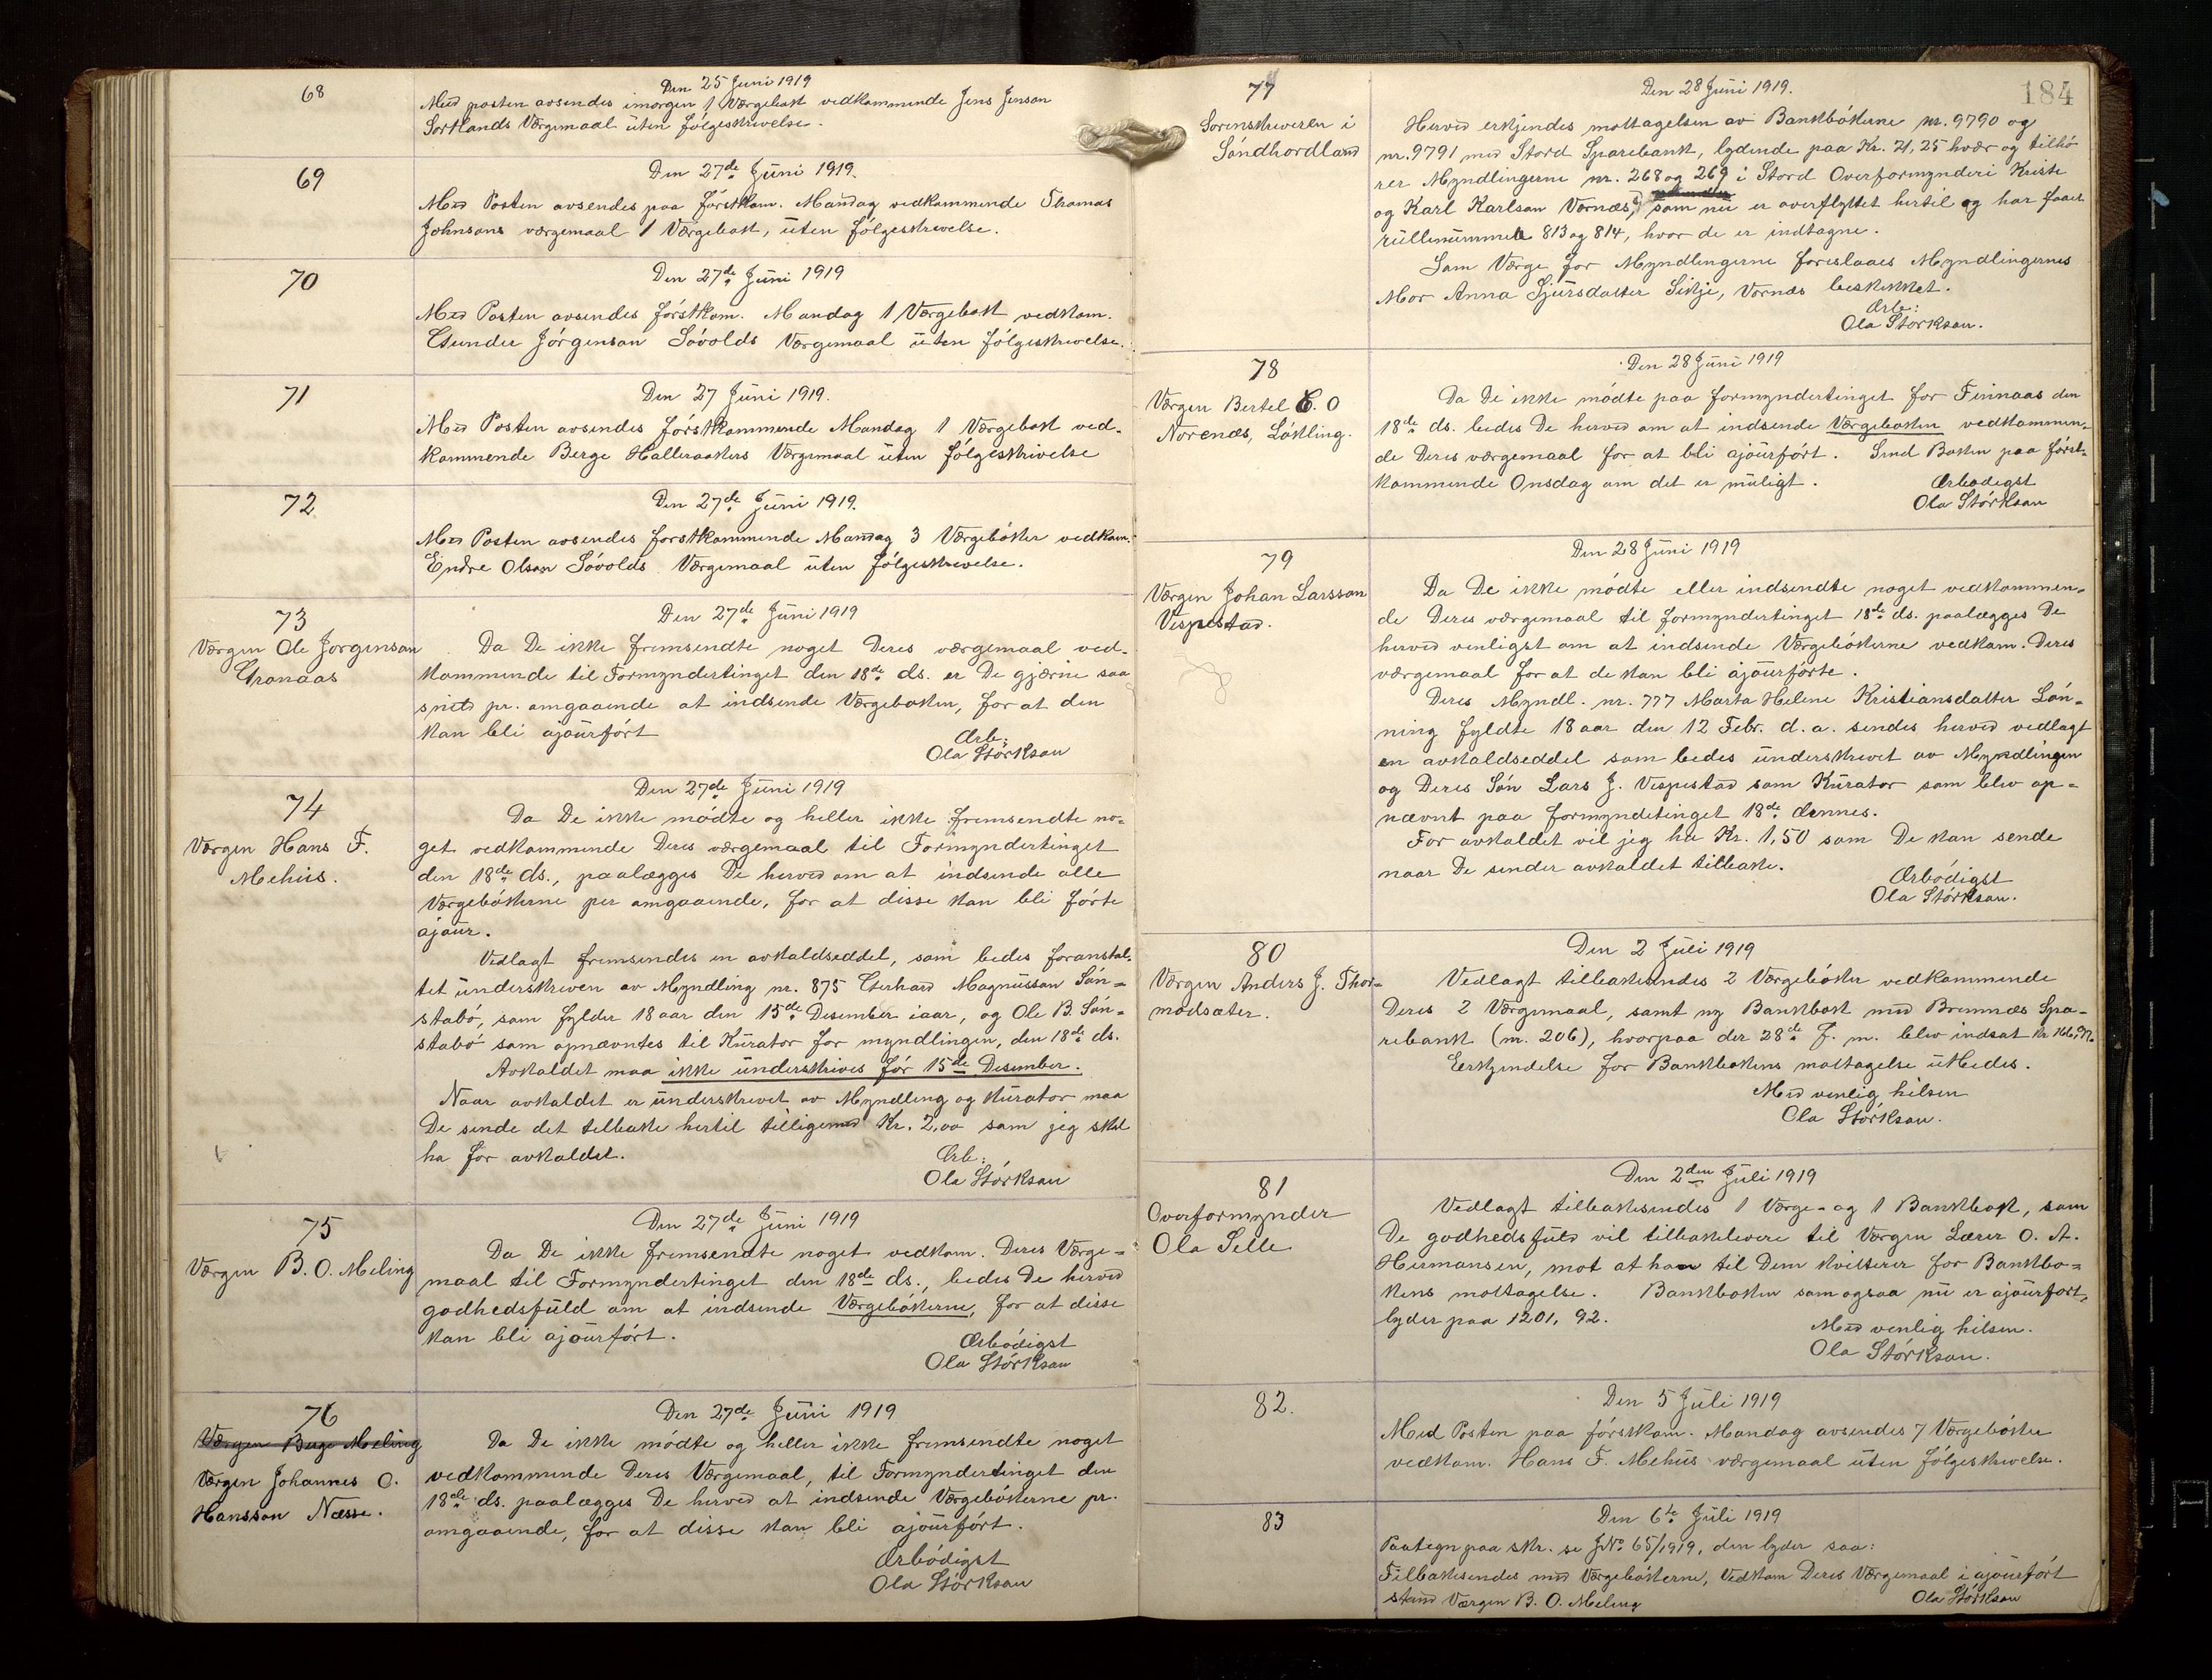 68
Den 25 Juni 1919
Med posten avsendes imorgen 1 Værgebok vedkommende Jens Jenson
Sortlands Værgemaal uten følgeskrivelse.
69
Den 27de Juni 1919.
Med Posten avsendes paa førstkom. Mandag vedkommende Thomas
Johnsons værgemaal 1 Værgebok, uten følgeskrivelse.
70
Den 27de Juni 1919
Med Posten avsendes førstkom. Mandag 1 Værgebok vedkom.
Gunder Jørgenson Søvolds Værgemaal uten følgeskrivelse.
71
Den 27 Juni 1919.
Med Posten avsendes førstkommende Mandag 1 Værgebok ved-
kommende Berge Halleraakers Værgemaal uten følgeskrivelse
72
Den 27de Juni 1919.
Med Posten avsendes førstkommende Mandag 3 Værgebøker vedkom.
Endre Olson Søvolds Værgemaal uten følgeskrivelse.
73
Værgen Ole Jørgenson
Granaas
Den 27de Juni 1919
Da De ikke fremsendte noget Deres værgemaal ved-
kommende til Formyndertinget den 18de ds. er De gjerne saa
snild pr. omgaaende at indsende Værgeboken, for at den
kan bli ajourført
Ærb:
Ola Størkson
74
Værgen Hans F.
Mehus.
Den 27de Juni 1919
Da De ikke mødte og heller ikke fremsendte no-
get vedkommende Deres værgemaal til Formyndertinget
den 18de ds., paalægges De herved om at indsende alle
Værgebøkerne per omgaaende, for at disse kan bli førte
ajour.
Vedlagt fremsendes en avkaldseddel, som bedes foranstal-
tet underskreven av Myndling nr. 875 Gerhard Magnusson Søn-
stabø, som fylder 18 aar den 15de Desember iaar, og Ole B. Søn-
stabø som opnævntes til Kurator for myndlingen, den 18de ds.
Avkaldet maa ikke underskrives før 15de Desember.
Naar avkaldet er underskrevet av Myndling og Kurator maa
De sende det tilbake hertil tilligemed Kr. 2,00 som jeg skal
ha for avkaldet.
Ærb:
Ola Størkson
75
Værgen B. O. Meling
Den 27de Juni 1919
Da De ikke fremsendte noget vedkom. Deres Værge-
maal til Formyndertinget den 18de ds., bedes De herved
godhedsfuld om at indsende Værgebøkerne, for at disse
kan bli ajourført.
Ærbødigst
Ola Størkson
76
Værgen Berge Meling
Værgen Johannes O.
Hansson Næsse.
Den 27de Juni 1919
Da De ikke mødte og heller ikke fremsendte noget
vedkommende Deres Værgemaal, til Formyndertinget den
18de ds. paalægges De herved at indsende Værgebøkerne pr.
omgaaende, for at disse kan bli ajourført.
Ærbødigst
Ola Størkson
184
77
Sorenskriveren i
Søndhordland
Den 28 Juni 1919.
Herved erkjendes mottagelsen av Bankbøkerne nr. 9790 og
nr. 9791 med Stord Sparebank, lydende paa Kr. 71,25 hver og tilhø-
rer Myndlingerne nr. 268 og 269 i Stord Overformynderi Kriste
og Karl Karlson Vornæs, som nu er overflyttet hertil og har faaet
rullenummer 813 og 814, hvor de er indtagne.
Som Værge for Myndlingerne foreslaaes Myndlingernes
Mor Anna Sjursdatter Sikje, Vornæs beskikket.
Ærb:
Ola Størkson.
78
Værgen Bertel C. O
Norenæs, Løkling.
Den 28 Juni 1919
Da De ikke mødte paa formyndertinget for Finnaas den
18de ds. bedes De herved om at indsende Værgeboken vedkommen-
de Deres værgemaal for at bli ajourført. Send Boken paa først-
kommende Onsdag om det er muligt.
Ærbødigst
Ola Størkson
79
Værgen Johan Larsson
Vespestad.
Den 28 Juni 1919
Da De ikke mødte eller indsendte noget vedkommen-
de Deres værgemaal til formyndertinget 18de ds. paalægges De
herved venligst om at indsende Værgebøkerne vedkom. Deres
værgemaal for at de kan bli ajourførte.
Deres Myndl. nr. 777 Marta Helene Kristiansdatter Løn-
ning fyldte 18 aar den 12 Febr. d. a. sendes herved vedlagt
en avkaldseddel som bedes underskrevet av Myndlingen
og Deres Søn Lars J. Vespestad som Kurator som blev op-
nævnt paa formyndetinget 18de dennes.
For avkaldet vil jeg ha Kr. 1,50 som De kan sende
naar De sender avkaldet tilbake.
Ærbødigst
Ola Størkson.
80
Værgen Anders J. Thor-
modsæter.
Den 2 Juli 1919
Vedlagt tilbakesendes 2 Værgebøker vedkommende
Deres 2 Værgemaal, samt ny Bankbok med Bremnæs Spa-
rebank (nr. 206), hvorpaa der 28de f. m. blev indsat
Erkjendelse for Bankbokens mottagelse utbedes.
Med venlig hilsen
Ola Størkson.
81
Overformynder
Ola Selle
Den 2den Juli 1919
Vedlagt tilbakesendes 1 Værge- og 1 Bankbok, som
De godhedsfuld vil tilbakelevere til Værgen Lærer O. A.
Hermansen, mot at han til Dem kvitterer for Bankbo-
kens mottagelse. Bankboken som ogsaa nu er ajourført,
lyder paa 1201,92.
Med venlig hilsen.
Ola Størkson.
82.
Den 5 Juli 1919
Med Posten paa førstkom. Mandag avsendes 7 Værgebøker
vedkom. Hans F. Mehus værgemaal uten følgeskrivelse.
83
Den 6te Juli 1919
Paategn paa skr. se JNo 65/1919, den lyder saa:
Tilbakesendes med Værgebøkerne, vedkom Deres Værgemaal i ajourført
stand Værgen B. O. Meling
Ola Størkson